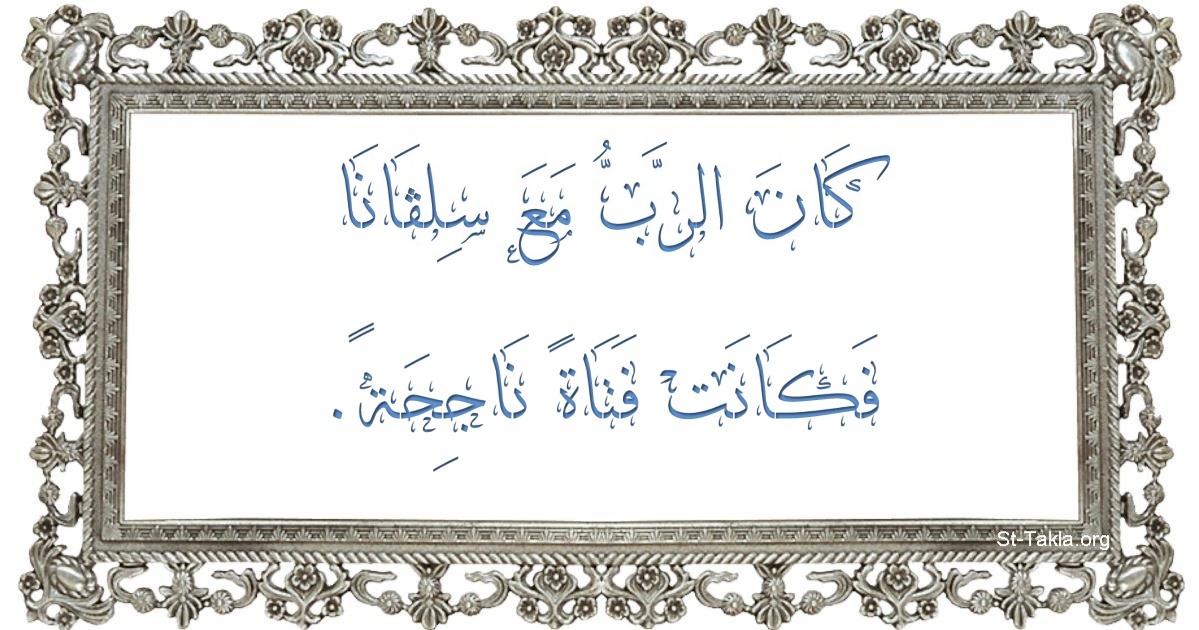 كَانَ الرَّبُّ مَعَ سِلڤَانَا
فَكَانَت فَتَاةً نَاجِحَةً.
St-Takla.org